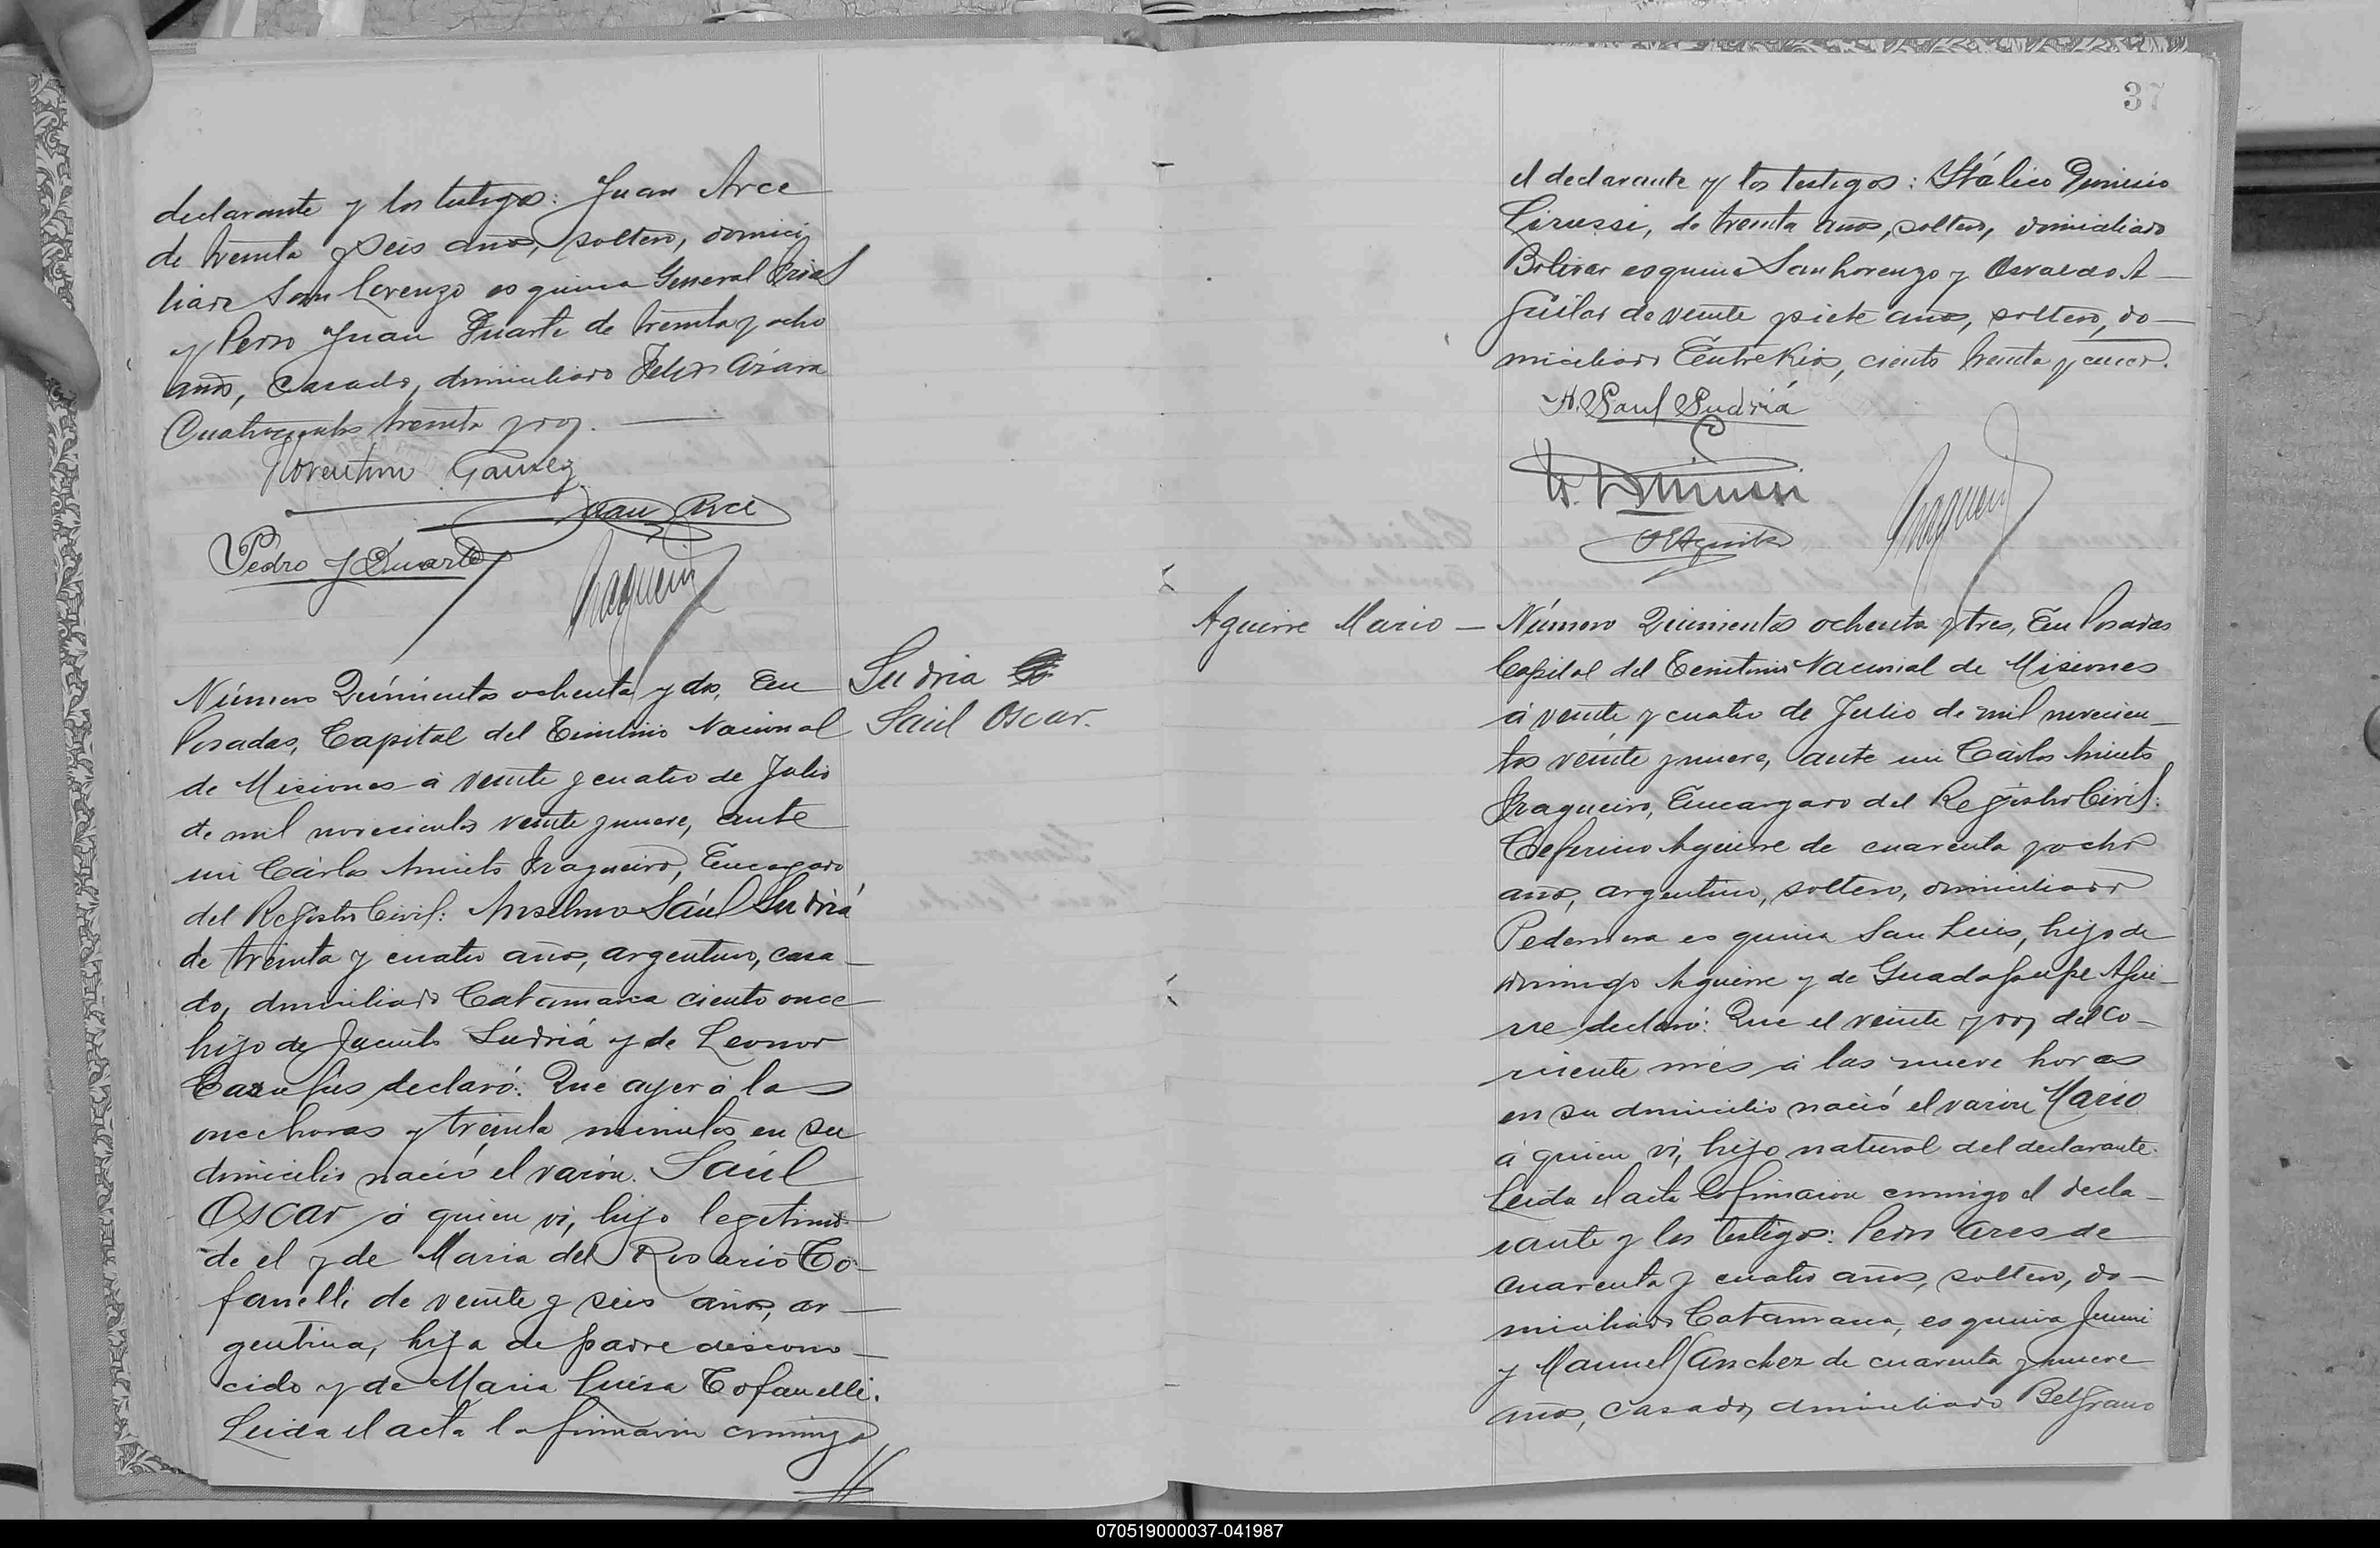 declarante y los testigos: Juan Arce
de treinta y seis años, soltero, domici
liado San Lorenzo esquina General
y Pedro Juan Duarte de treinta y ocho
años, casado, domiciliado Felix Azara
Cuatrocientos treinta y dos.
Florentino Gamez
Juan Arce
Pedro J Duarte
Número Quinientos ochenta y dos, En
Posadas, Capital del Territorio Nacional
de Misiones á veinte y cuatro de Julio
de mil novecientos veinte y nueve, ante
mi Cárlos Aniceto Fragueiro, Encargado
del Registro Civil: Anselmo Saúl Sudriá
de treinta y cuatro años, argentino, casa
do, domiciliado Catamarca ciento once
hijo de Jacinto Sudriá y de Leonor
declaró: Que ayer á las
once horas y treinta minutos en su
domicilio nació el varón Saúl
Oscar á quien vi, hijo legitimo
de el y de Maria del Rosario To-
fanelli de veinte y seis años, ar
gentina, hija de padre descono
cido y de Maria Luisa Tofanelli.
Leida el acta la firmaron conmigo
Sudria
Saúl Oscar.
37
el declarante y los testigos: Itálico Dionisio
de treinta años, soltero, domiciliado
Bolivar esquina San Lorenzo y Osvaldo A
guilar de veinte y siete años, soltero, do
miciliado Entre Rios, ciento treinta y cinco.
A. Saul Sudriá
Aguirre Mario — Número Quinientos ochenta y tres, En Posadas
Capital del Territorio Nacional de Misiones
á veinte y cuatro de Julio de mil novecien
tos veinte y nueve, ante mi Cárlos Aniceto
Fragueiro, Encargado del Registro Civil:
Ceferino Aguirre de cuarenta y ocho
años, argentino, soltero, domiciliado
Pedernera esquina San Luis, hijo de
Domingo Aguirre y de Guadalupe Agui
rre declaró: Que el veinte y dos del co
rriente mes á las nueve horas
en su domicilio nació el varón Mario
á quien vi, hijo natural del declarante.
Leida el acta la firmaron conmigo el decla
rante y los testigos: Pedro Ares de
cuarenta y cuatro años, soltero, do
miciliado Catamarca, esquina Junin
y Manuel Sanchez de cuarenta y nueve
años, casado, domiciliado Belgrano
070519000037-041987